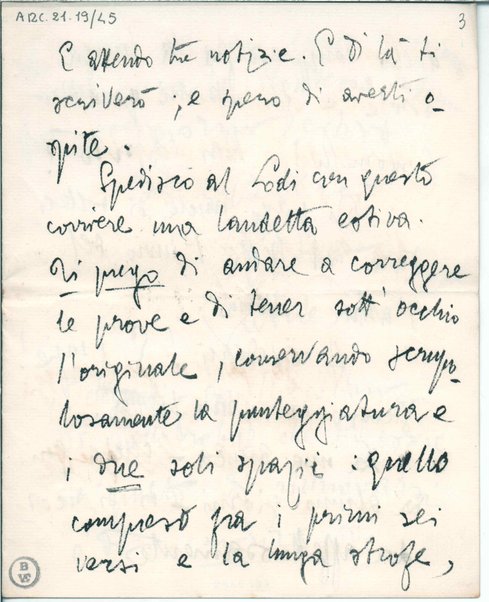 ARC.21.19/45
3
E attendo tue notizie. E di là ti
scriverò; e spero di averti o-
spite.
Spedisco al Lodi con questo
corriere una laudetta estiva.
Ti prego di andare a correggere
le prove e di tener sott'occhio
l'originale, conservando scrupo-
losamente la punteggiatura e
, due soli spazii: quello
compreso fra i primi sei
versi e la lunga strofe,